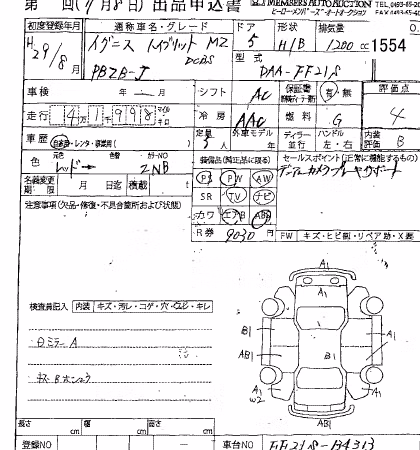 第 回(7月8日) 出品申込書 MEMBERS AUTO AUCTION TEL.0493-65-20
ヒーローメンバーズ・オートオークション FAX.0493-65
初度登録年月 通称車名・グレード ドア 形状 排気量
H 29/8月 イグニス ハイブリット MZ 5 H/B 1200 cc 1554
DCBS 型式
PBZB-J DAA-FF21S
車検 年 月 シフト AC 保証書 有 無 燃料 評価点
走行 4万1998 マイル キロ 冷房 AAC G 4
車歴 自家用・レンタ・事業用( ) 定員 5人 外車モデル 年 ディーラー 並行 ハンドル 左・右 内装評価 B
色 元色 色替 カラーNO 装備品(純正品に限る) セールスポイント(正常に機能するもの)
レッド→ ZNB PS PW AW
名義変更期限 月 日迄 積載 SR TV ナビ
注意事項(欠品・修復・不具合箇所および状態) カワ エアB ABS
R券 9030円 FW キズ・ヒビ割・リペア跡・X要
検査員記入 内装 キズ・汚レ・コゲ・穴・ハヒビ・キレ
ミラーA
キズBホシュウ
A1
A1
B1
AB1
B1
A1
A1
W2
A1
AB1
長さ cm 幅 cm 高さ cm
登録NO 車台NO FF21S-134313